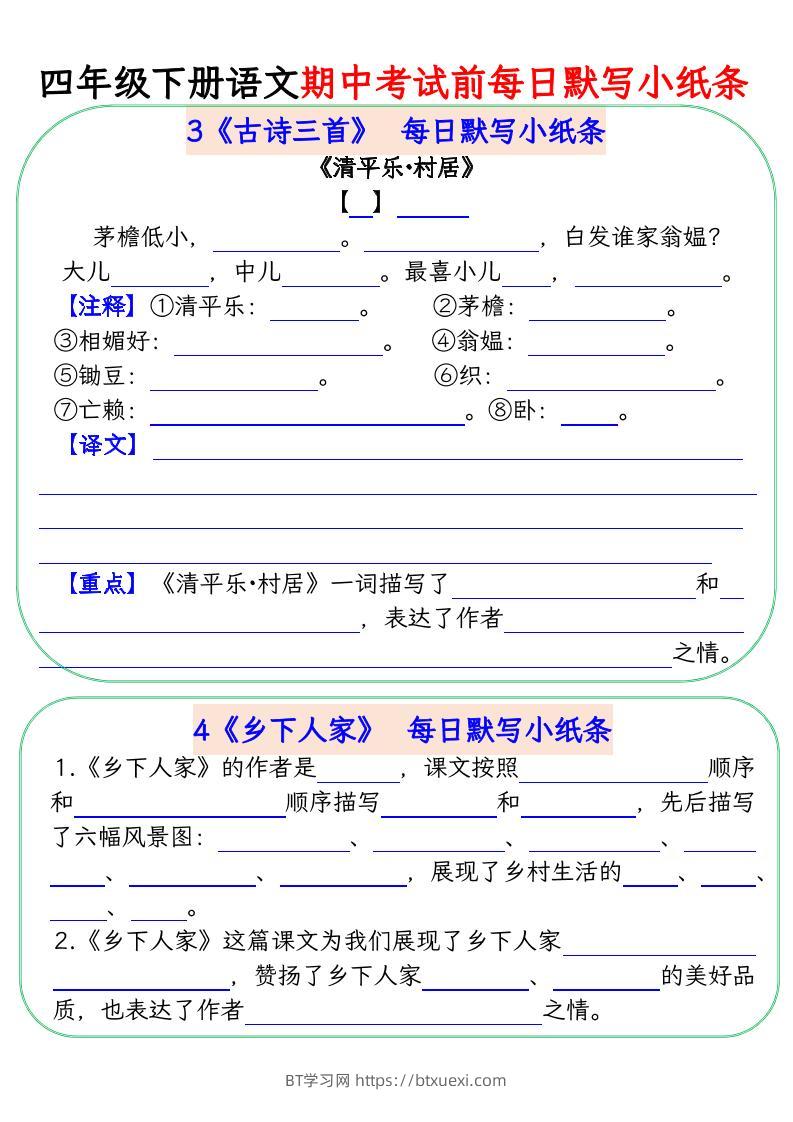 四年级下册语文期中考试前每日默写小纸条
3《古诗三首》 每日默写小纸条
《清平乐·村居》
【 】
茅檐低小，。，白发谁家翁媪？
大儿，中儿。最喜小儿，。
【注释】①清平乐：。②茅檐：。
③相媚好：。④翁媪：。
⑤锄豆：。⑥织：。
⑦亡赖：。⑧卧：。
【译文】
【重点】《清平乐·村居》一词描写了和
，表达了作者
之情。
4《乡下人家》 每日默写小纸条
1.《乡下人家》的作者是，课文按照顺序
和顺序描写和，先后描写
了六幅风景图：、、、
、、，展现了乡村生活的、、
、。
2.《乡下人家》这篇课文为我们展现了乡下人家
，赞扬了乡下人家、的美好品
质，也表达了作者之情。
BT学习网 https://btxuexi.com